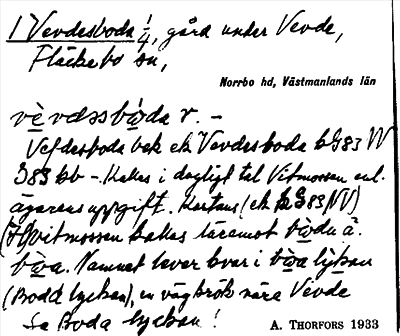 1) Vevdesboda 1/4, gård under Vevde,
Fläckebo sn,
Norrbo hd, Västmanlands län
vèvdəssbωda r. –
Vefdesboda bek ek Vevdesboda kG83 NV
G83 bb – Kallas i dagligt tal Vitmossen enl.
ägarens uppgift. Kartans (ek kG83 NV)
Vitmossen kallas däremot bωdu å.
bωa. Namnet lever kvar i bωa lykan
(Boda lyckan), en vägkrök nära Vevde
Se Boda lyckan!
A. Thorfors 1933